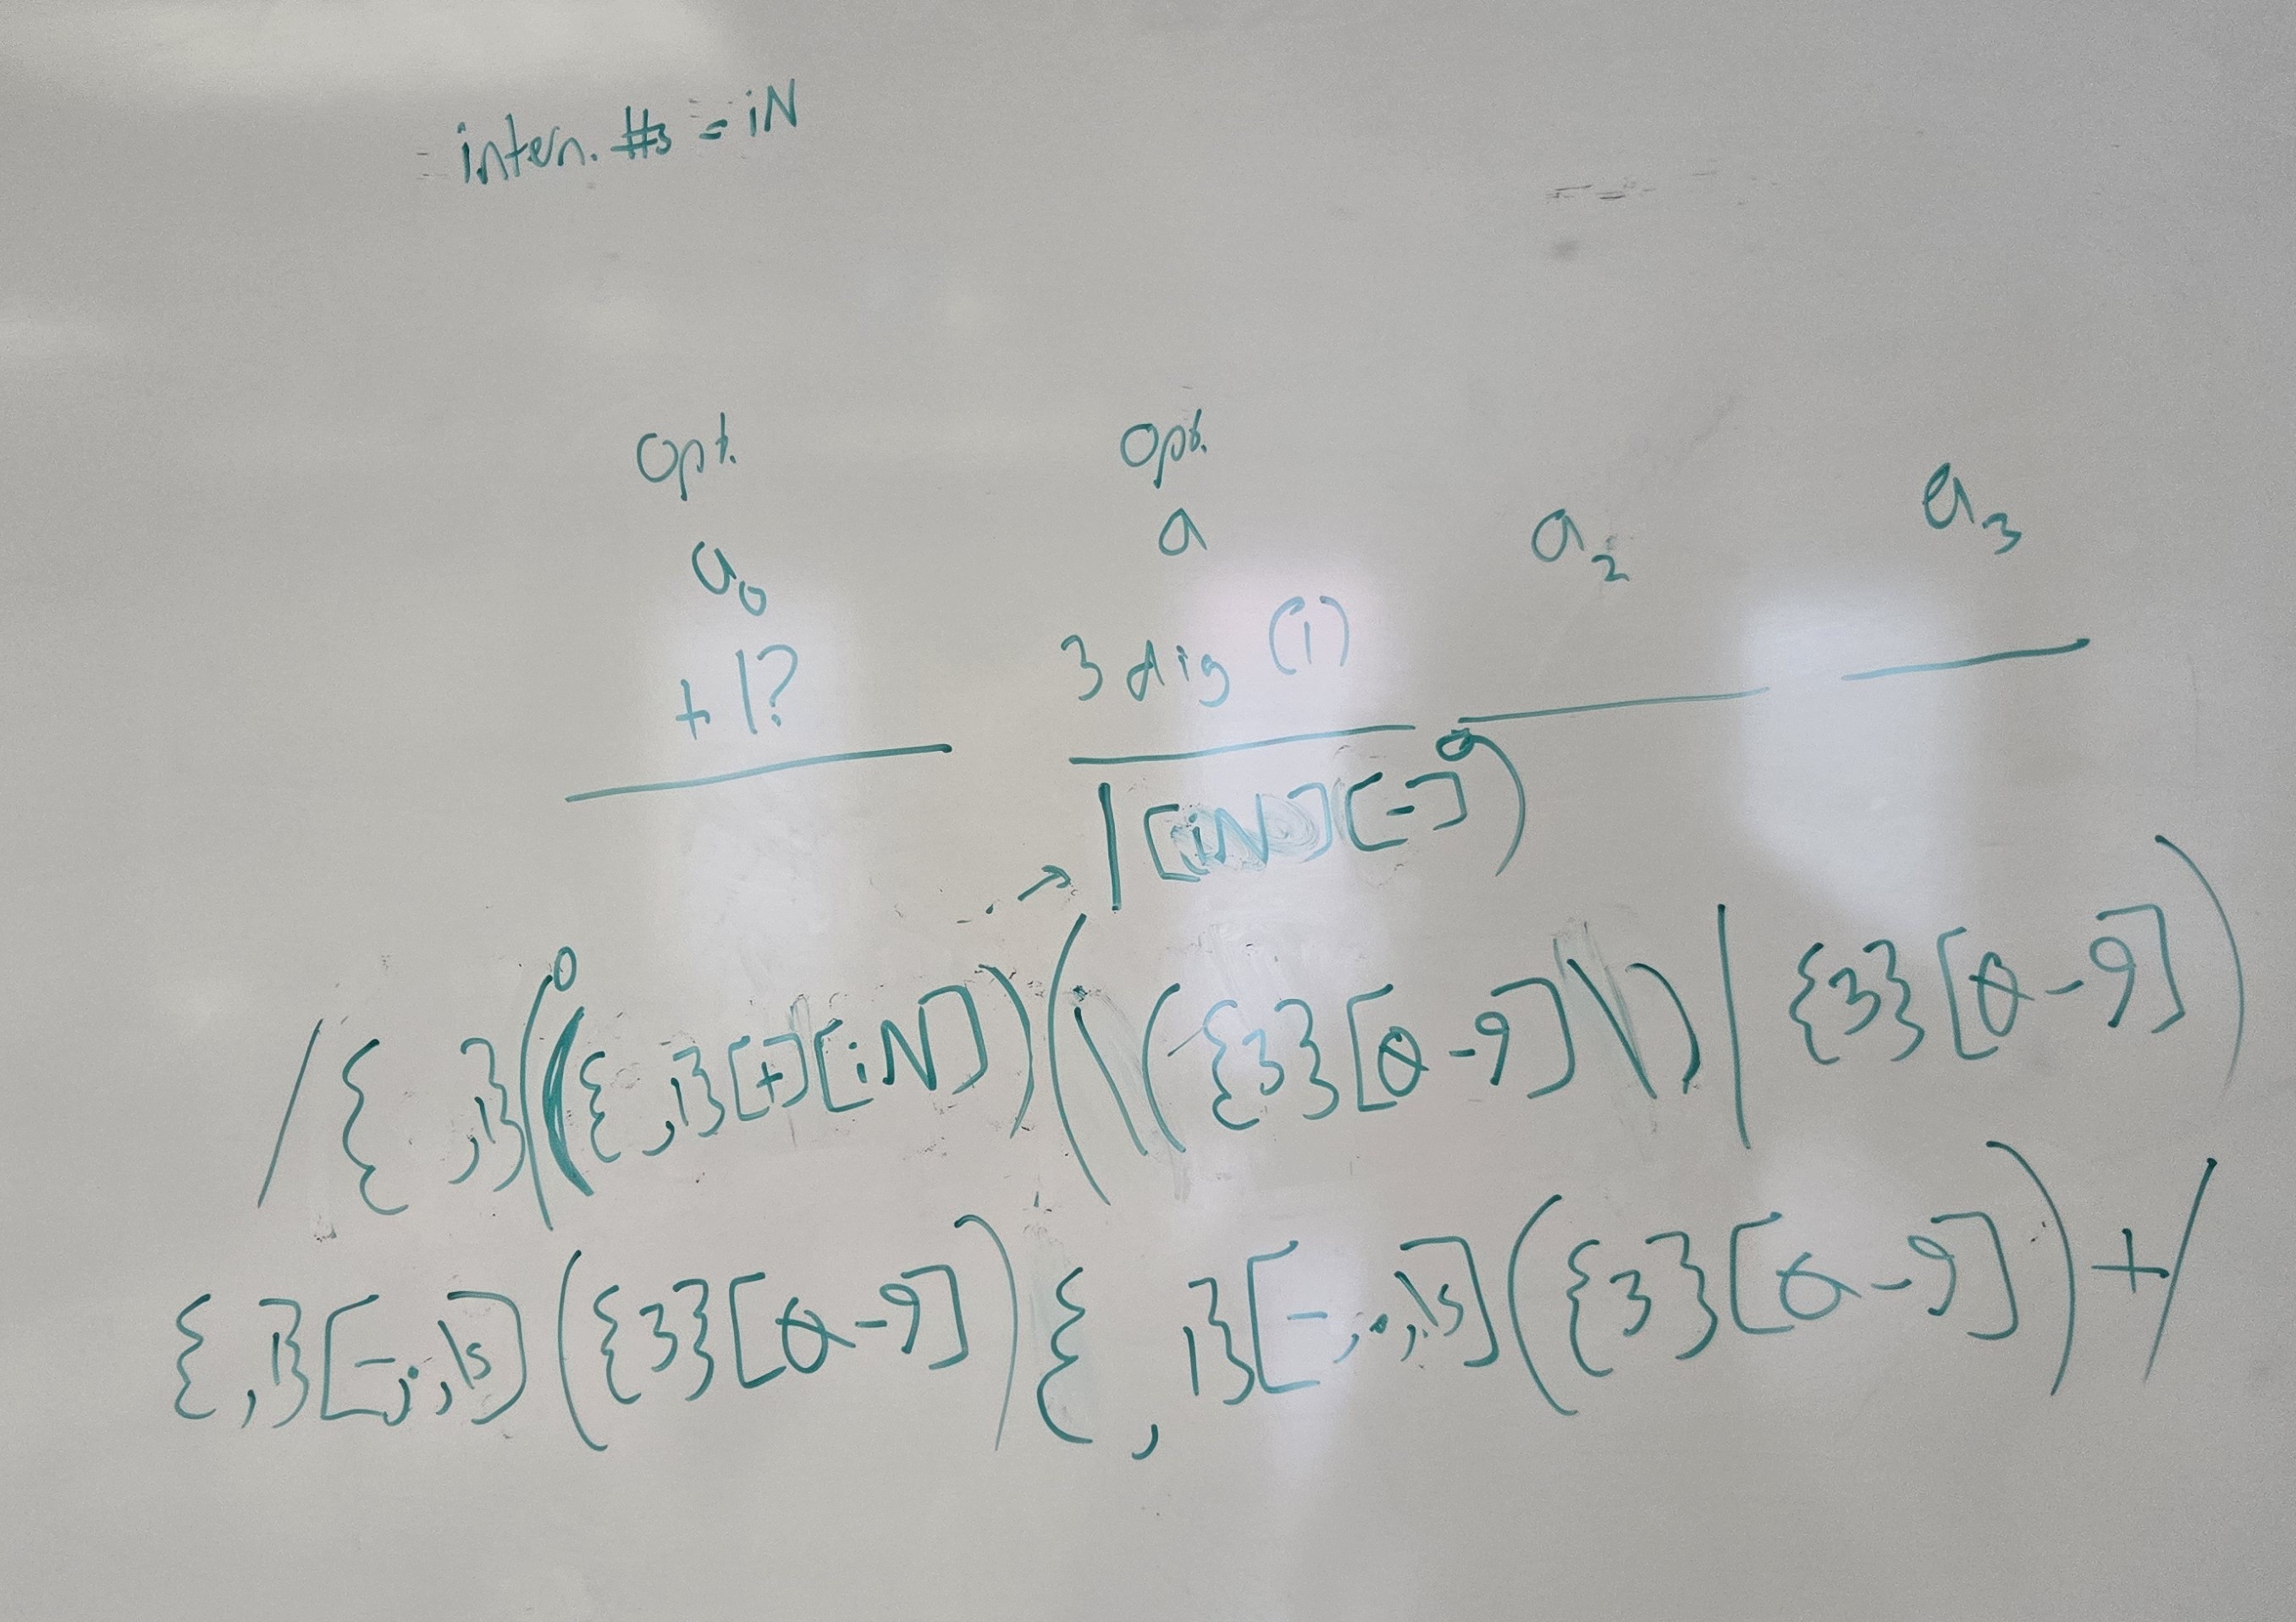 intern. #s = iN
opt. opt.
a₀ a a₂ a₃
+1? 3 dig (1)
|[iN][-])
/{ ,1}(({ ,1}[+][iN])(\({3}[0-9]\)|{3}[0-9])
{,1}[-,.,\s]({3}[0-9]){ ,1}[-,.,\s]({3}[0-9])+/